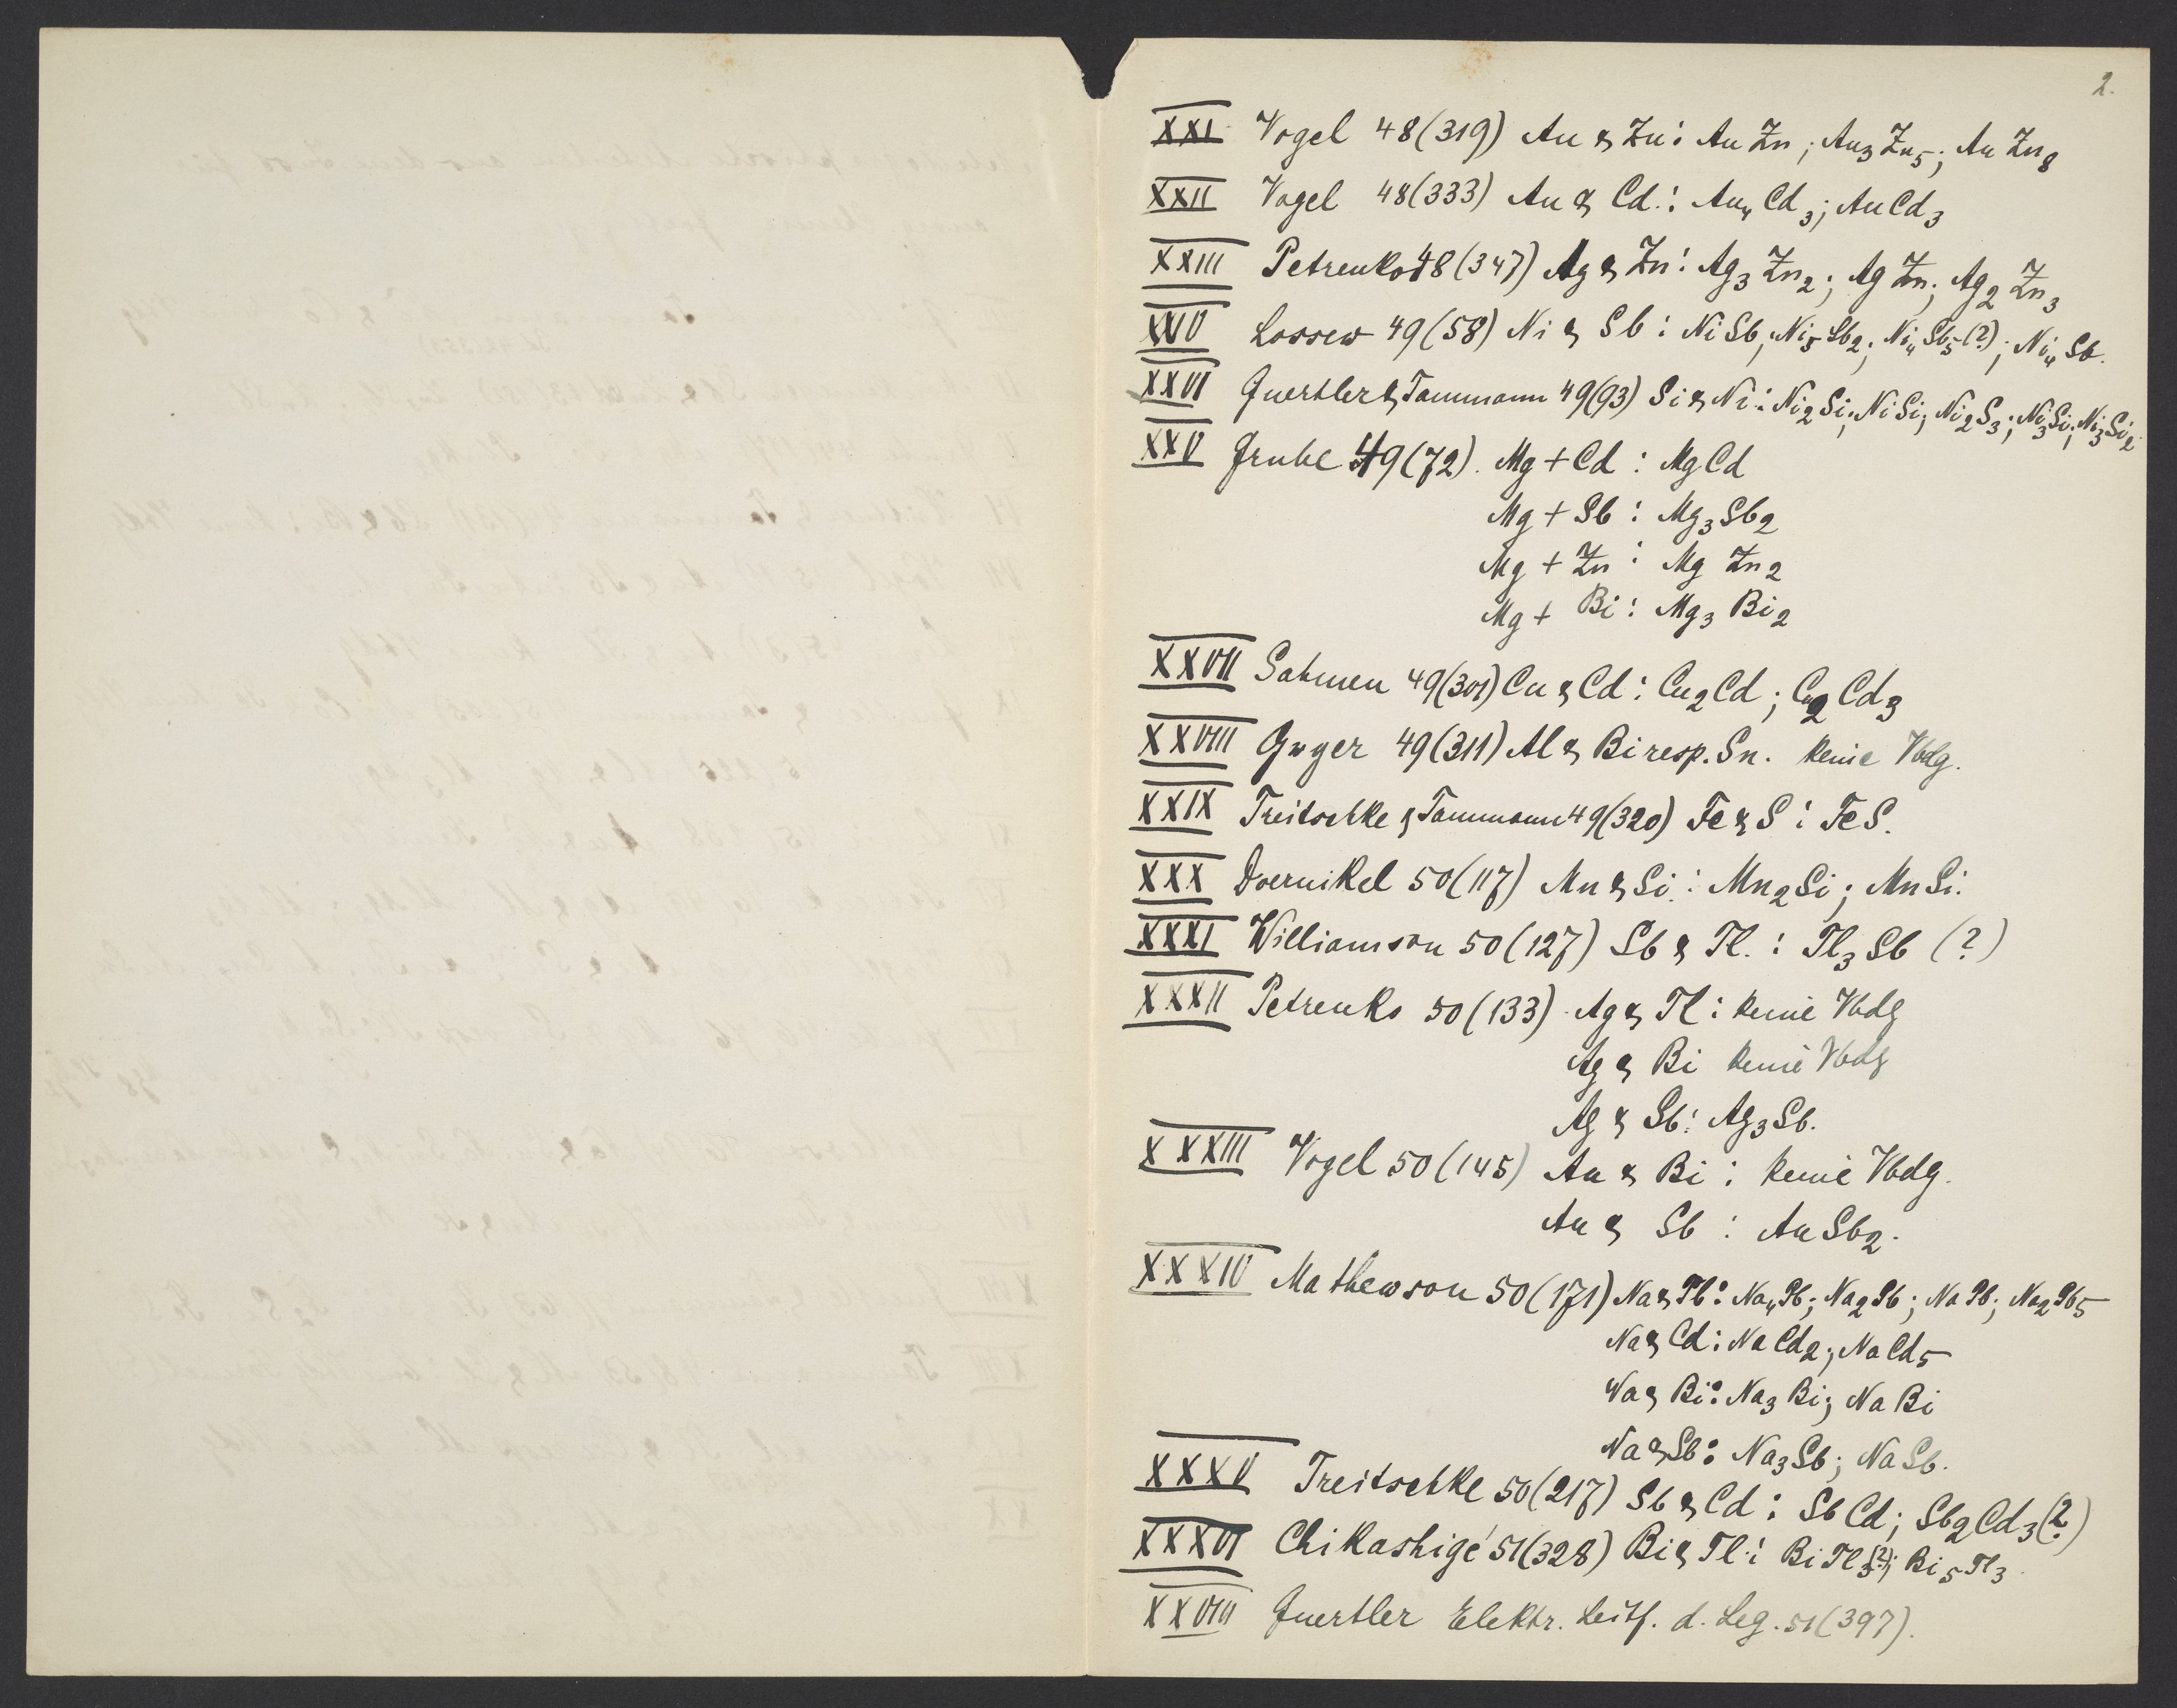 2.
XXI Vogel 48(319) Au & Zn: AuZn; Au3Zn5; AuZn8
XXII Vogel 48(333) Au & Cd.: Au4Cd3; AuCd3
XXIII Petrenko 48(347) Ag & Zn: Ag3Zn2; AgZn; Ag2Zn3
XXIV Lossew 49(58) Ni & Sb: NiSb; Ni5Sb2; Ni4Sb5(?); Ni4Sb.
XXVI Guertler & Tammann 49(93) Si & Ni: Ni2Si; NiSi; Ni2S3; Ni3Si; Ni3Si2
XXV Grube 49(72). Mg + Cd: MgCd
Mg + Sb: Mg3Sb2
Mg + Zn: MgZn2
Mg + Bi: Mg3Bi2
XXVII Sahmen 49(301) Cu & Cd: Cu2Cd; Cu2Cd3
XXVIII Gwyer 49(311) Al & Bi resp. Sn. Keine Vbdg.
XXIX Treitschke & Tammann 49(320) Fe & S: FeS.
XXX Doernikel 50(117) Mn & Si: Mn2Si; MnSi.
XXXI Williamson 50(127) Sb & Tl.: Tl3Sb (?)
XXXII Petrenko 50(133) Ag & Tl: Keine Vbdg
Ag & Bi Keine Vbdg
Ag & Sb: Ag3Sb.
XXXIII Vogel 50(145) Au & Bi: Keine Vbdg.
Au & Sb: AuSb2.
XXXIV Mathewson 50(171) Na & Pb: Na4Pb; Na2Pb; NaPb; Na2Pb5
Na & Cd: NaCd2; NaCd5
Na & Bi: Na3Bi; NaBi
Na & Sb: Na3Sb; NaSb.
XXXV Treitschke 50(217) Sb & Cd: SbCd; Sb2Cd3(?)
XXXVI Chikashigé 51(328) Bi & Tl: BiTl3(?); Bi5Tl3.
XXVIII Guertler Elektr. Leitf. d. Leg. 51(397).